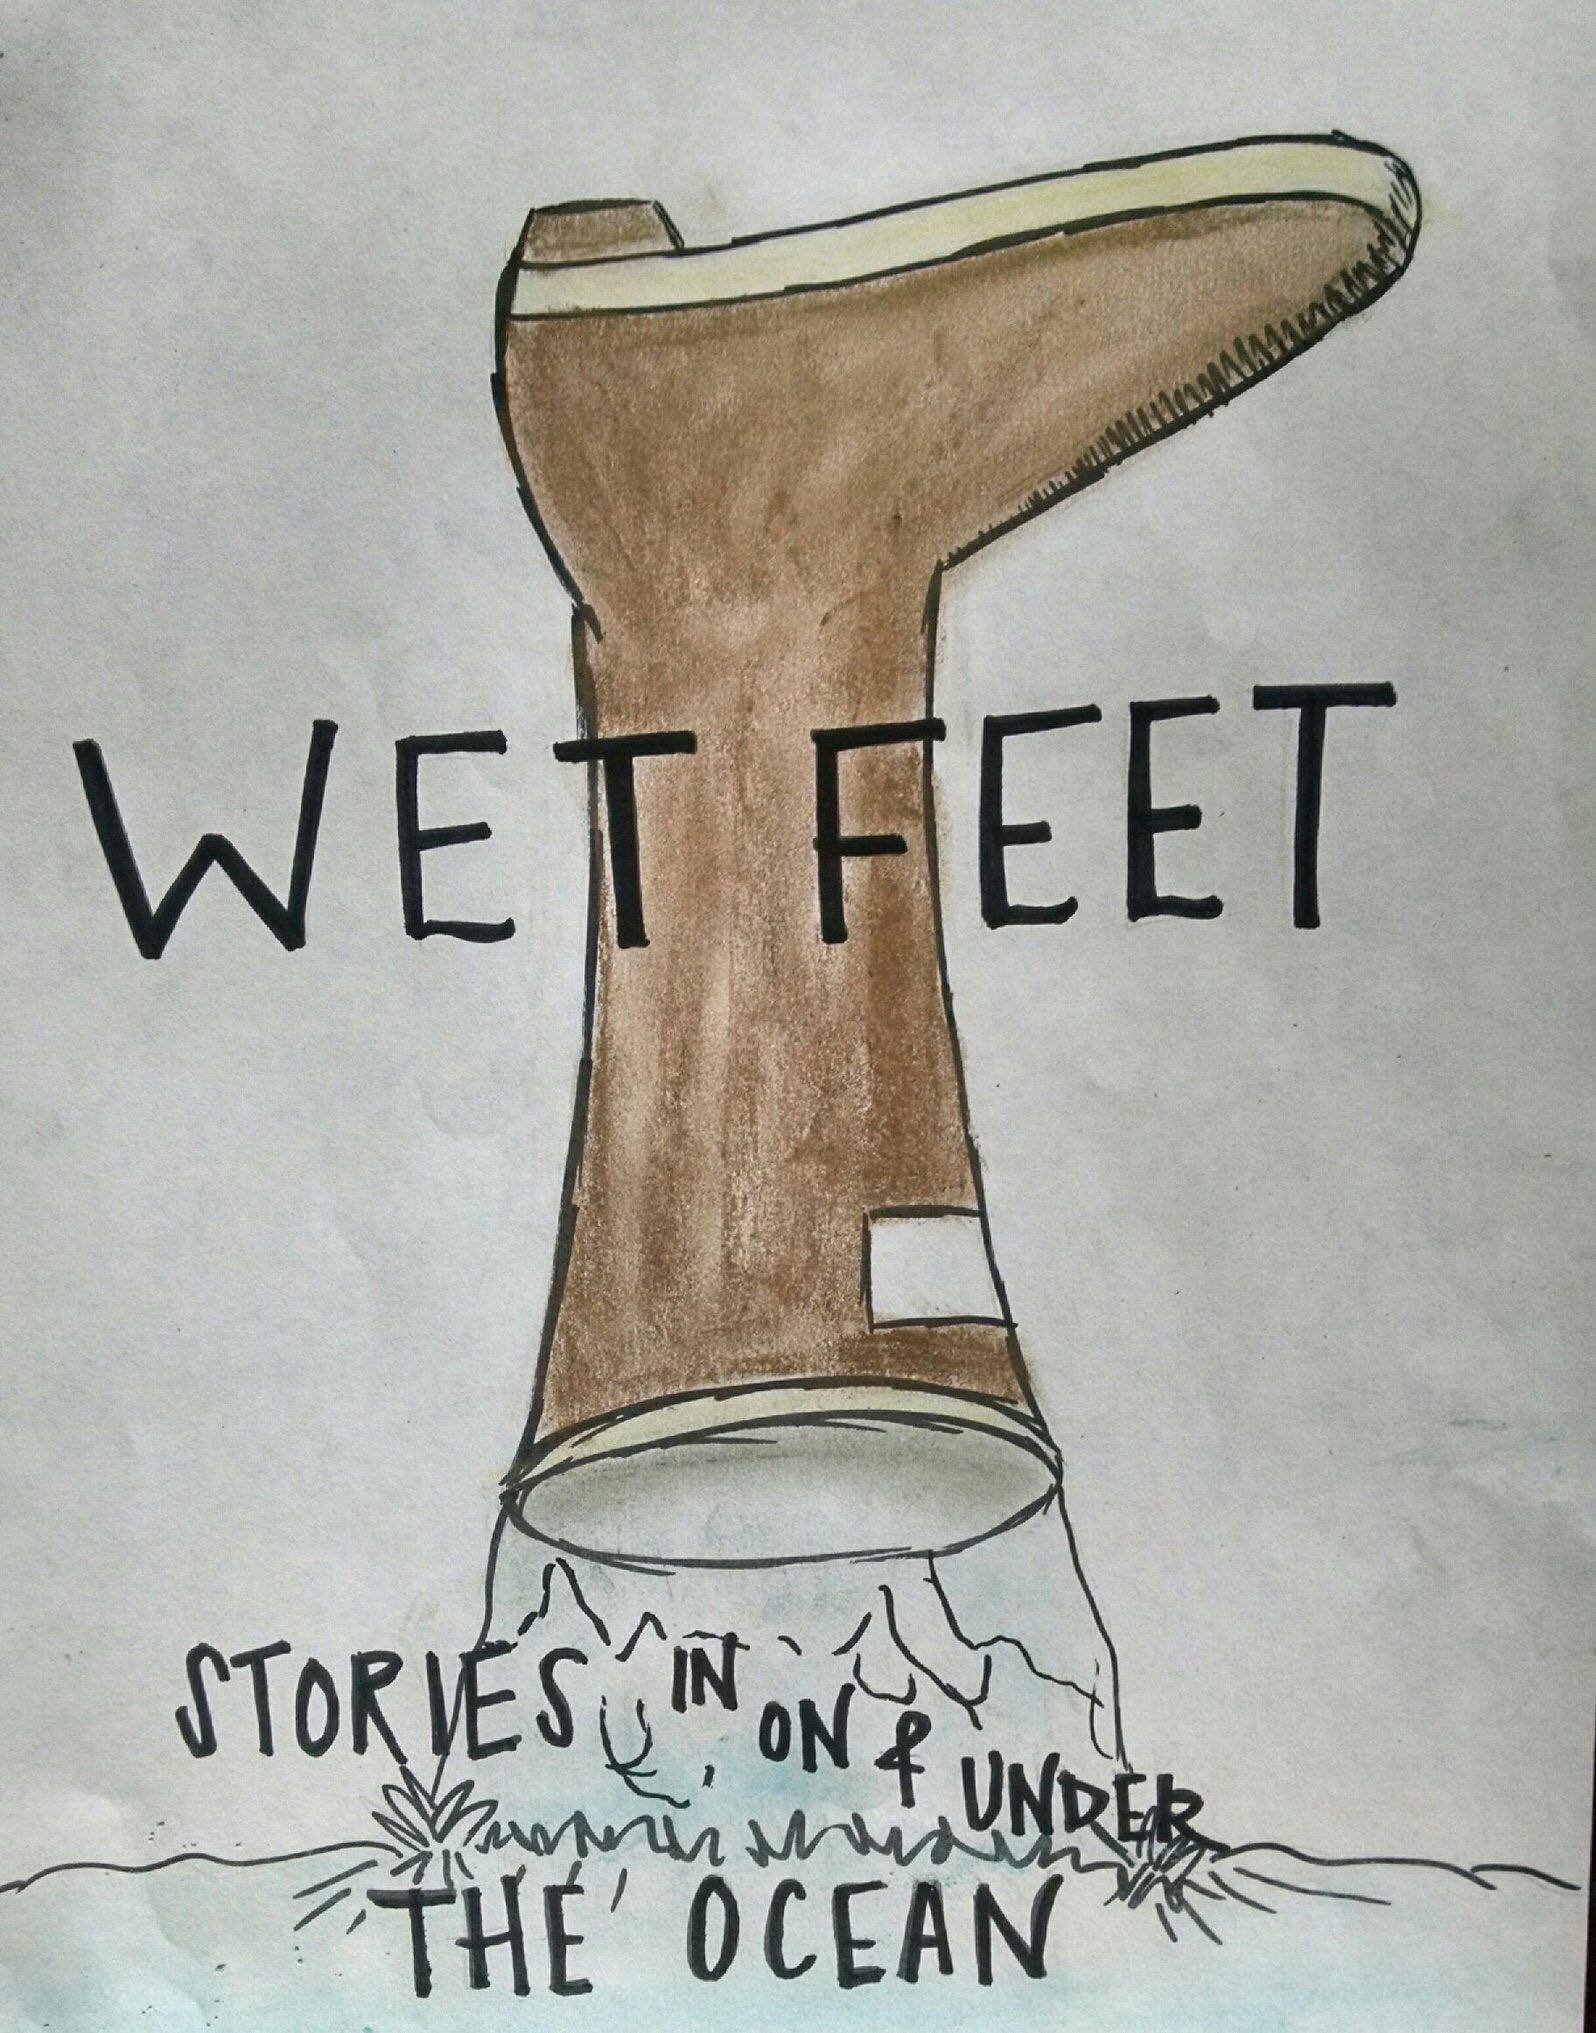 WET FEET
STORIES IN ON & UNDER
THE OCEAN